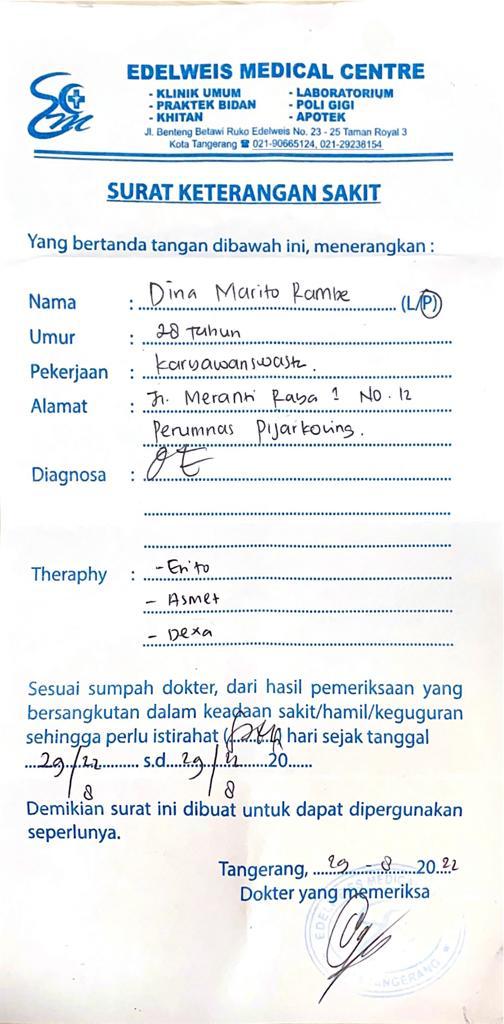 EDELWEIS MEDICAL CENTRE
- KLINIK UMUM - LABORATORIUM
- PRAKTEK BIDAN - POLI GIGI
- KHITAN - APOTEK
Jl. Benteng Betawi Ruko Edelweis No. 23 - 25 Taman Royal 3
Kota Tangerang ☎ 021-90665124, 021-29238154
SURAT KETERANGAN SAKIT
Yang bertanda tangan dibawah ini, menerangkan :
Nama : Dina Marito Rambe (L/P)
Umur : 28 Tahun
Pekerjaan : karyawanswasta.
Alamat : Jl. Meranti Raya 1 NO. 12
Perumnas
Diagnosa :
Theraphy : - Erito
- Asmet
- Dexa
Sesuai sumpah dokter, dari hasil pemeriksaan yang
bersangkutan dalam keadaan sakit/hamil/keguguran
sehingga perlu istirahat ( ) hari sejak tanggal
29/8 22 s.d. 29/8 22 20......
Demikian surat ini dibuat untuk dapat dipergunakan
seperlunya.
Tangerang, 29 - 8 2022
Dokter yang memeriksa
EDELWEIS MEDICAL
TANGERANG